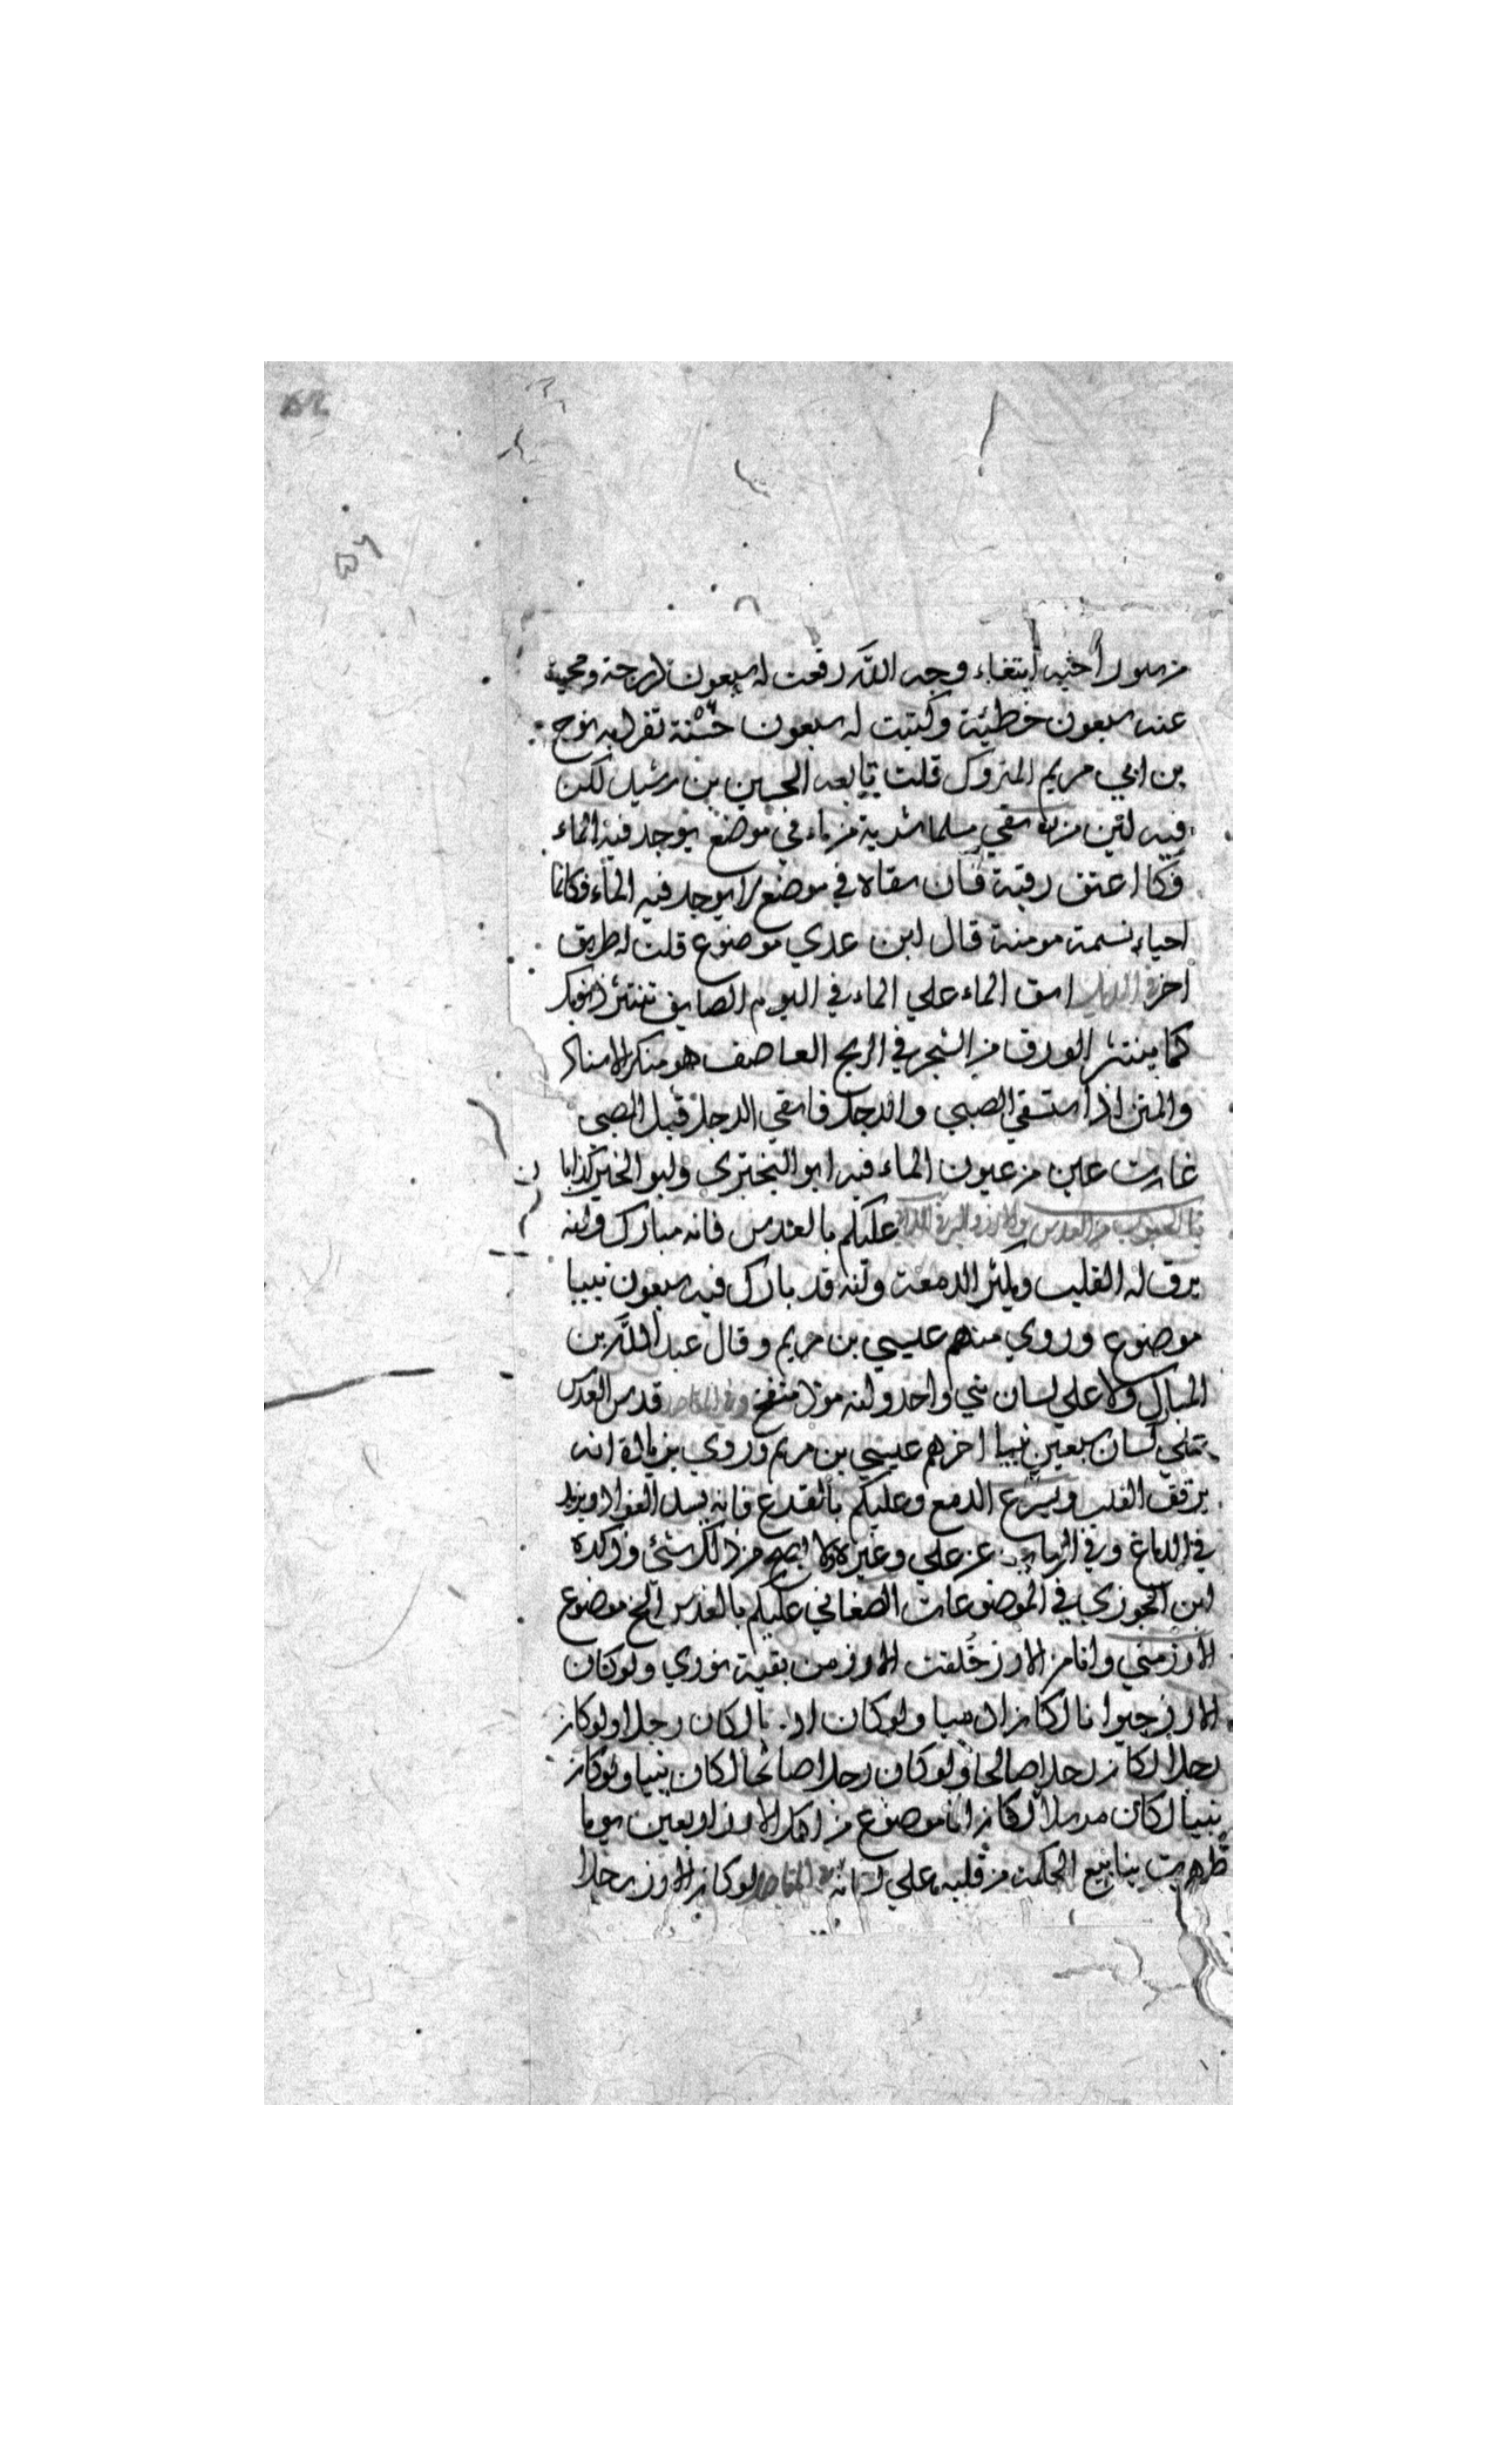 من سور أخيه ابتغاء وجه الله رفعت له سبعون درجة ومحيت
عنه سبعون خطيئة وكتبت له سبعون حسنة تفرد به نوح
بن ابي مريم المتروك قلت تابعه الحسين بن رشيد لكن
فيه لين من سقي مسلما شربة من ماء في موضع يوجد فيه الماء
فكا اعتق رقبة فان سقاه في موضع لا يوجد فيه الماء فكانما
احياء نسمة مومنة قال ابن عدي موضوع قلت له طريق
اخر في الذيل اسق الماء علي الماء في اليوم الصايف تنتثر ذنوبك
كما ينتثر الورق من الشجر في الريح العاصف هو منكر الاسناد
والمتن اذا استسقي الصبي والرجل فاسقي الرجل قبل الصبي
غارت عين من عيون الماء فيه ابو البختري وابو الخير كذابا
ن
باب الحبوب من العدس والارز في اللالي عليكم بالعدس فانه مبارك وانه
يرق له القلب ويكثر الدمعة وانه قد بارك فيه سبعون نبيا
موضوع وروي منهم عيسي بن مريم وقال عبد الله بن
المبارك ولا علي لسان نبي واحد وانه موذ منفخ وفي المقاصد قدس العدس
علي لسان سبعين نبيا اخرهم عيسي بن مريم وروي بزيادة انه
يرقق القلب ويسرع الدمع وعليكم بالقرع فانه يشد الفواد ويزيد
في الدماغ وفي الباب عن علي وغيره ولا يصح من ذلك شئ وذكره
ابن الجوزي في الموضوعات الصغاني عليكم بالعدس الخ موضوع
الارز مني وانا من الارز خلقت الارز من بقية نوري ولو كان
الارز حيوانا لكان ادميا ولو كان ادميا لكان رجلا ولو كان
رجلا لكان رجلا صالحا ولو كان رجلا صالحا لكان نبيا ولو كان
نبيا لكان مرسلا لكان انا موضوع من اكل الارز اربعين يوما
ظهرت ينابيع الحكمة من قلبه علي لسانه المقاصد لو كان الارز رجلا